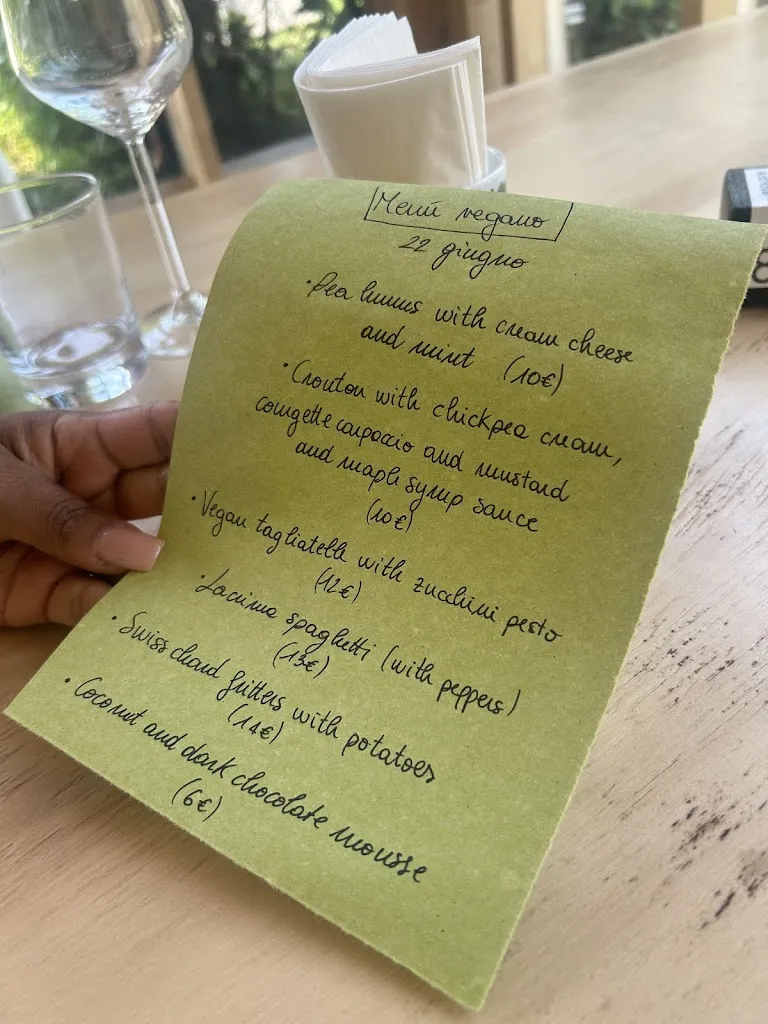 Menù vegano
22 giugno
• Pea humus with cream cheese
and mint (10€)
• Crouton with chickpea cream,
courgette carpaccio and mustard
and maple syrup sauce
(10€)
• Vegan tagliatelle with zucchini pesto
(12€)
• Lacrima spaghetti (with peppers)
(13€)
• Swiss chard fritters with potatoes
(14€)
• Coconut and dark chocolate mousse
(6€)